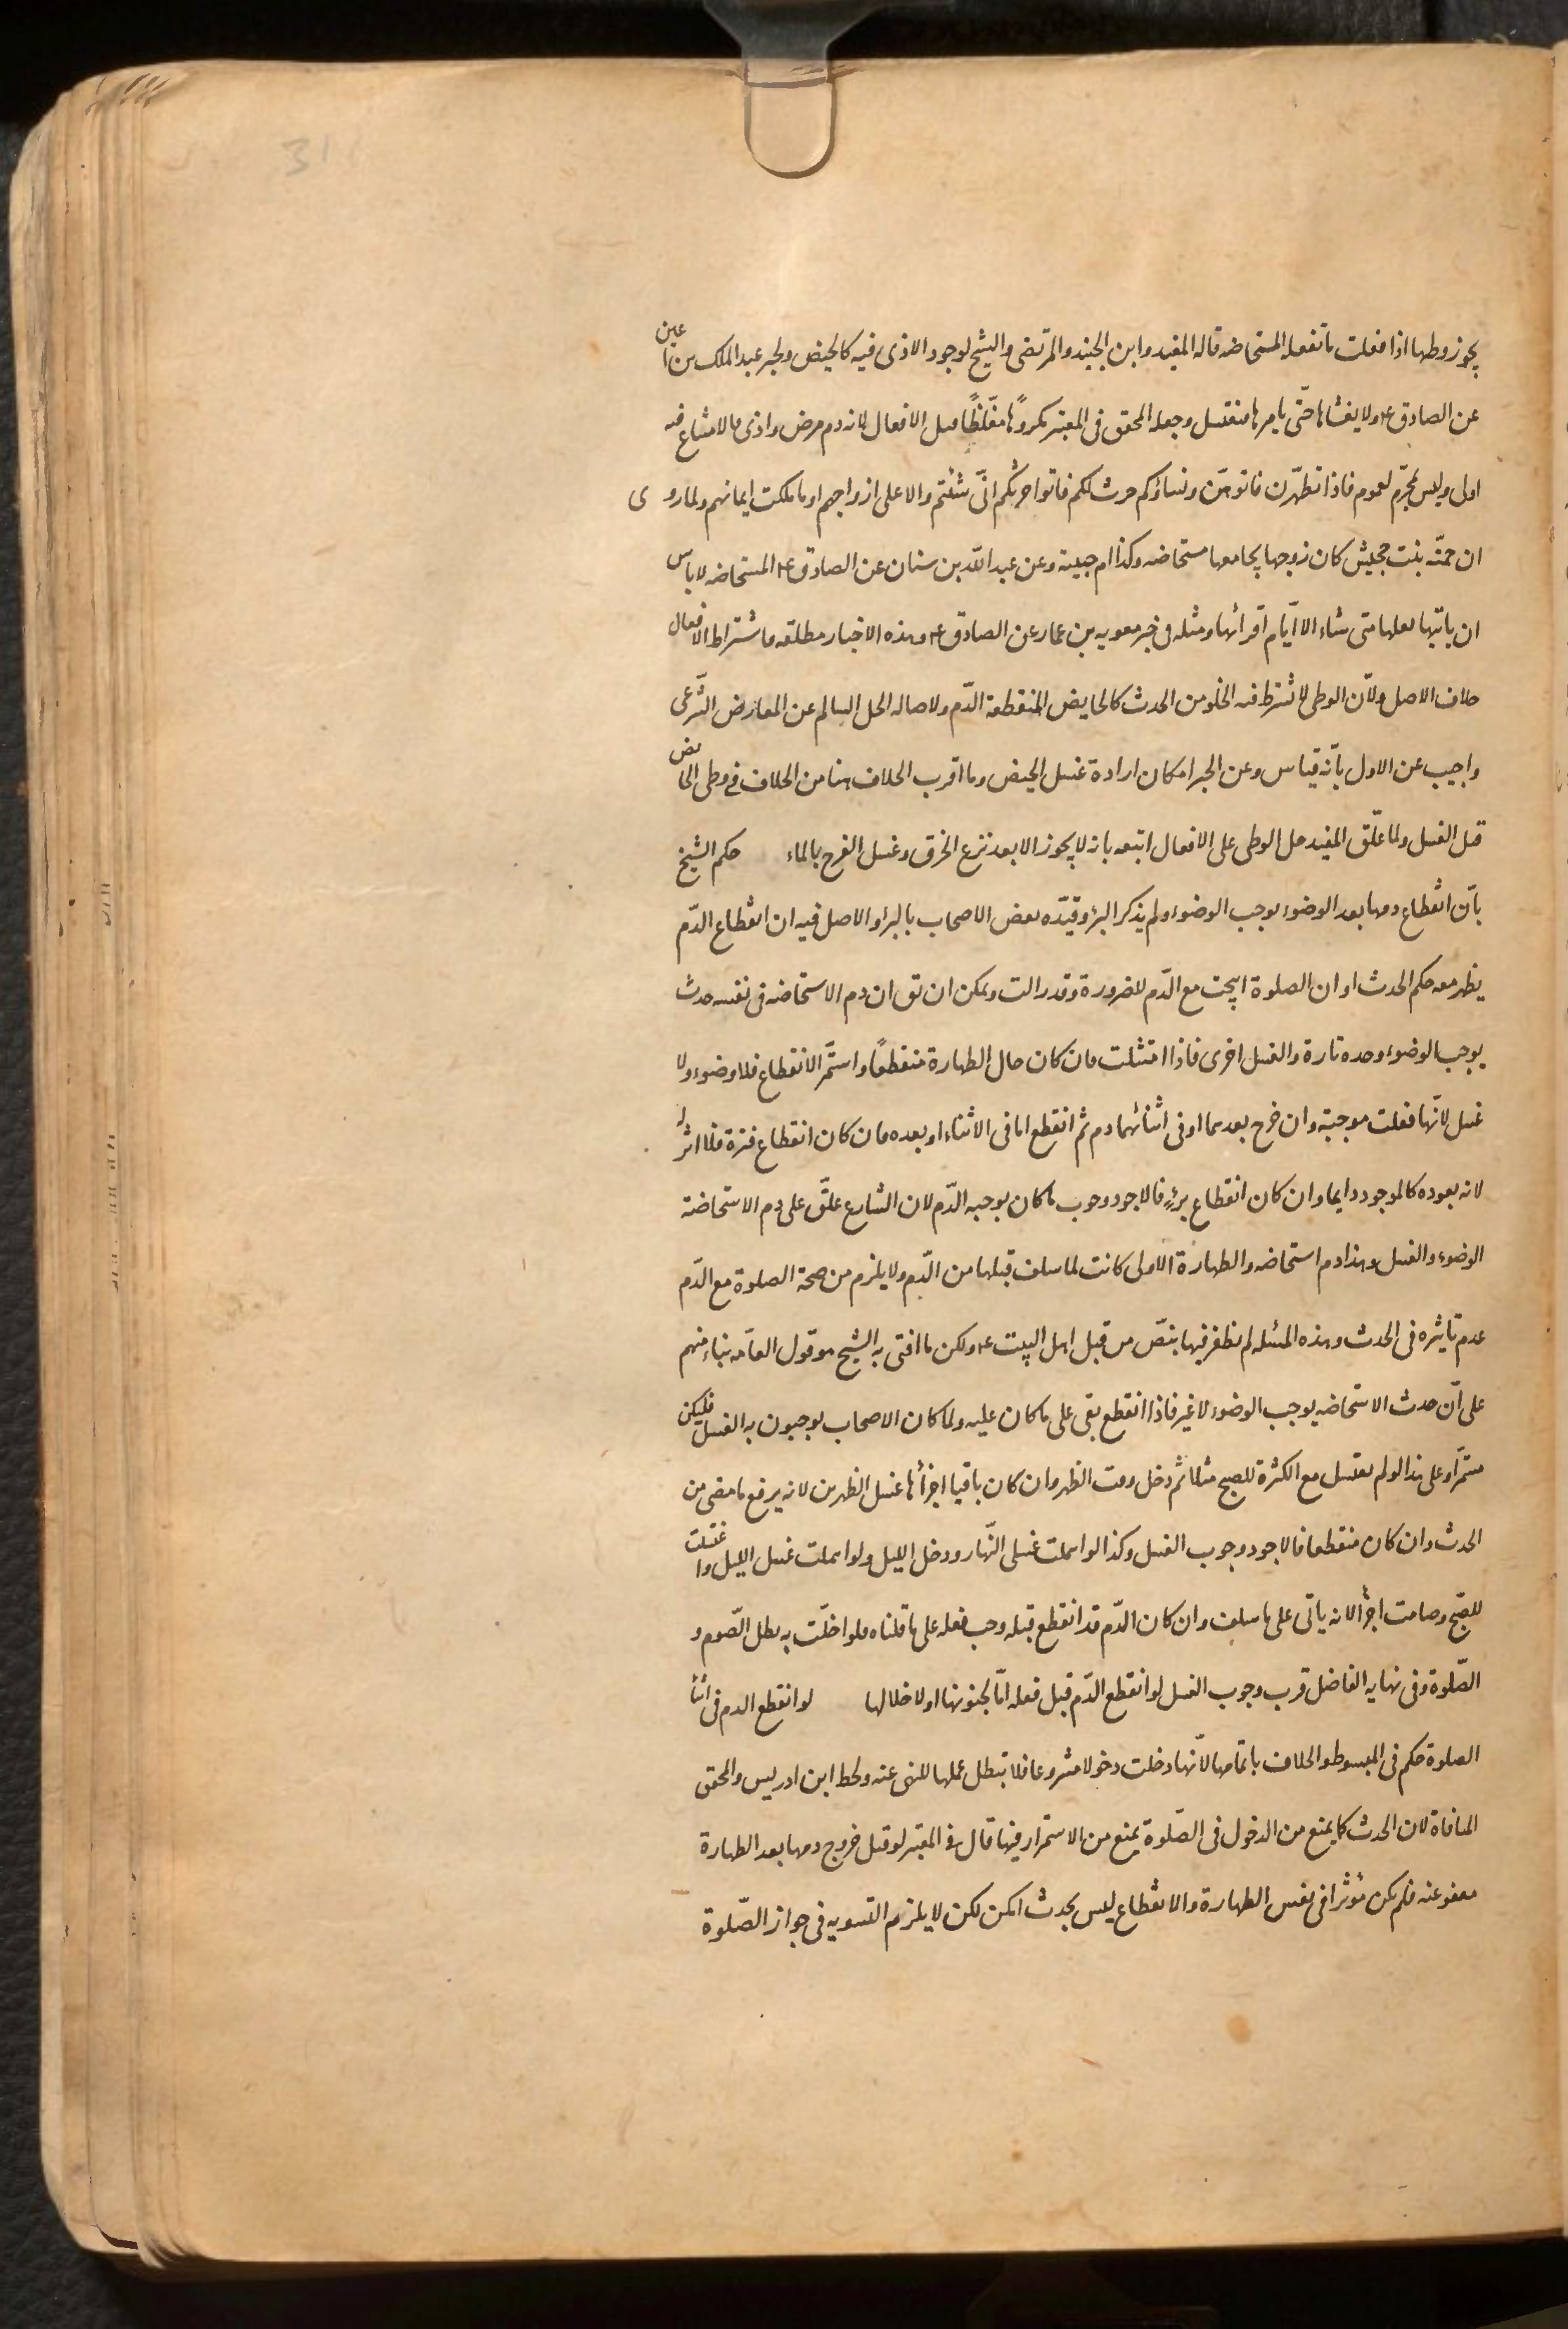 31
يجوز وطيها اذا فعلت ما تفعله المستحاضه قاله المفيد وابن الجنيد والمرتضى والشيخ لوجود الاذى فيه كالحيض ولخبر عبد الملك بن اعين
عن الصادق ع ولا يغشاها حتّى يامرها فتغتسل وجعله المحقق فى المعتبر مكروهًا مغلّظًا قبل الافعال لانه دم مرض واذى فالامتناع فيه
اولى وليس بمحرّم لعموم فاذا تطهّرن فاتوهنّ ونساؤكم حرث لكم فاتوا حرثكم انّى شئتم والا على ازواجهم او ما ملكت ايمانهم ولما روى
ان حمنّه بنت جحش كان زوجها يجامعها مستحاضه وكذا ام حبيبة وعن عبد الله بن سنان عن الصادق ع المستحاضه لا باس
ان ياتيها بعلها متى شاء الا ايّام اقرائها ومثله فى خبر معويه بن عمار عن الصادق ع وهذه الاخبار مطلقه فاشتراط الافعال
خلاف الاصل ولانّ الوطى لا تشترط فيه الخلو من الحدث كالحايض المنقطعة الدّم ولاصاله الحل السالم عن المعارض الشّرعى
واجيب عن الاول بانّه قياس وعن الخبر امكان ارادة غسل الحيض وما اقرب الخلاف هنا من الخلاف فى وطى الحائض
قبل الغسل ولما علّق المفيد حل الوطى على الافعال اتبعه بانه لا يجوز الا بعد نزع الخرق وغسل الفرج بالماء حكم الشيخ
بانّ انقطاع دمها بعد الوضوء يوجب الوضوء ولم يذكر البرؤ وقيّده بعض الاصحاب بالبرؤ والاصل فيه ان انقطاع الدّم
يظهر معه حكم الحدث او ان الصلوة ابيحت مع الدّم للضرورة وقد زالت ويمكن ان تق ان دم الاستحاضه فى نفسه حدث
يوجب الوضوء وحده تارة والغسل اخرى فاذا امتثلت فان كان حال الطهارة منقطعًا واستمّر الانقطاع فلا وضوء ولا
غسل لانّها فعلت موجبة وان خرج بعدهما او فى اثنائهما دم ثم انقطع اما فى الاثناء او بعده فان كان انقطاع فترة فلا اثر له
لانه بعوده كالموجود دايما وان كان انقطاع برءٍ فالاجود وجوب ما كان يوجبه الدّم لان الشارع علّق على دم الاستحاضة
الوضوء والغسل وهذا دم استحاضه والطهارة الاولى كانت لما سلف قبلها من الدّم ولا يلزم من صحة الصلوة مع الدّم
عدم تاثيره فى الحدث وهذه المسئله لم نظفر فيها بنصّ من قبل اهل البيت ع ولكن ما افتى به الشيخ هو قول العامّه بناء منهم
على انّ حدث الاستحاضه يوجب الوضوء لا غير فاذا انقطع بقى على ما كان عليه ولما كان الاصحاب يوجبون به الغسل فليكن
مستمّرا وعلى هذا لو لم تغتسل مع الكثرة للصبح مثلا ثم دخل وقت الظهر وان كان باقيا اجزأها غسل الظهرين لانه يرفع ما مضى من
الحدث وان كان منقطعا فالاجود وجوب الغسل وكذا لو اهملت غسلى النّهار ودخل الليل ولو اهملت غسل الليل واغتسلت
للصبح وصامت اجزأ لانه ياتى على ما سلف وان كان الدّم قد انقطع قبله وجب فعله على ما قلناه فلو اخلّت به بطل الصّوم و
الصّلوة وفى نهايه الفاضل قرب وجوب الغسل لو انقطع الدّم قبل فعله امّا لجنونها او لاخلالها لو انقطع الدم فى اثنا
الصلوة حكم فى المبسوط والخلاف باتمامها لانّها دخلت دخولا مشروعا فلا تبطل عملها للنهى عنه ولحظ ابن ادريس والمحقق
المنافاة لان الحدث كما يمنع من الدخول فى الصّلوة يمنع من الاستمرار فيها قال فى المعتبر لو قيل خروج دمها بعد الطهارة
معفو عنه فلم يكن مؤثرا فى نقض الطهارة والانقطاع ليس بحدث امكن لكن لا يلزم التسويه فى جواز الصّلوة